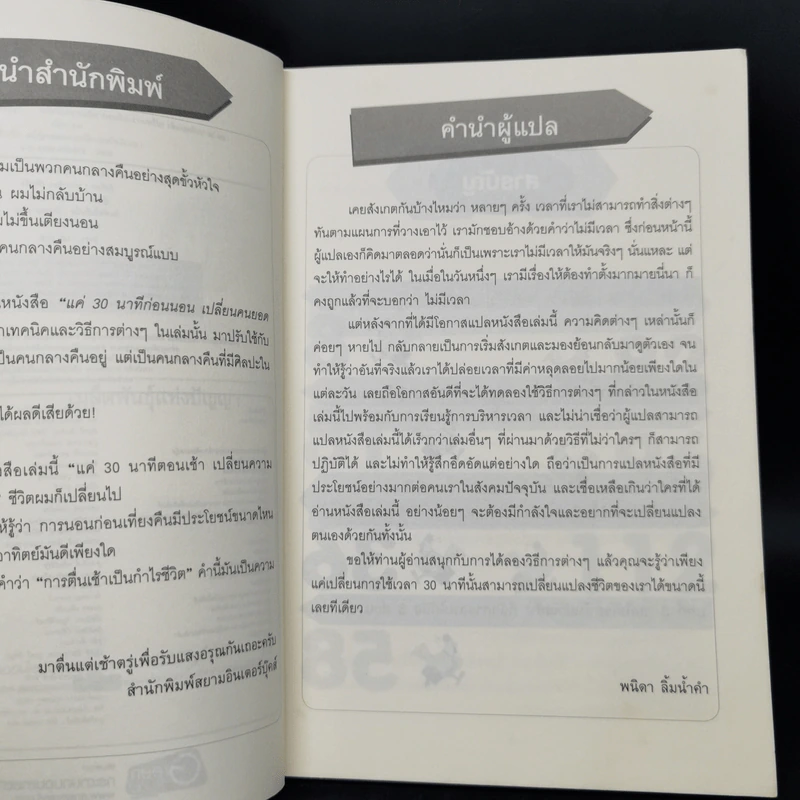 นำสำนักพิมพ์
มเป็นพวกคนกลางคืนอย่างสุดขั้วหัวใจ
ผมไม่กลับบ้าน
มไม่ขึ้นเตียงนอน
คนกลางคืนอย่างสมบูรณ์แบบ
หนังสือ “แค่ 30 นาทีก่อนนอน เปลี่ยนคนยอด
าเทคนิคและวิธีการต่างๆ ในเล่มนั้น มาปรับใช้กับ
เป็นคนกลางคืนอยู่ แต่เป็นคนกลางคืนที่มีศิลปะใน
ได้ผลดีเสียด้วย!
งสือเล่มนี้ “แค่ 30 นาทีตอนเช้า เปลี่ยนความ
ชีวิตผมก็เปลี่ยนไป
ห้รู้ว่า การนอนก่อนเที่ยงคืนมีประโยชน์ขนาดไหน
อาทิตย์มันดีเพียงใด
คำว่า “การตื่นเช้าเป็นกำไรชีวิต” คำนี้มันเป็นความ
มาตื่นแต่เช้าตรู่เพื่อรับแสงอรุณกันเถอะครับ
สำนักพิมพ์สยามอินเตอร์บุ๊คส์
คำนำผู้แปล
เคยสังเกตกันบ้างไหมว่า หลายๆ ครั้ง เวลาที่เราไม่สามารถทำสิ่งต่างๆ
ทันตามแผนการที่วางเอาไว้ เรามักชอบอ้างด้วยคำว่าไม่มีเวลา ซึ่งก่อนหน้านี้
ผู้แปลเองก็คิดมาตลอดว่านั่นก็เป็นเพราะเราไม่มีเวลาให้มันจริงๆ นั่นแหละ แต่
จะให้ทำอย่างไรได้ ในเมื่อในวันหนึ่งๆ เรามีเรื่องให้ต้องทำตั้งมากมายนี่นา ก็
คงถูกแล้วที่จะบอกว่า ไม่มีเวลา
แต่หลังจากที่ได้มีโอกาสแปลหนังสือเล่มนี้ ความคิดต่างๆ เหล่านั้นก็
ค่อยๆ หายไป กลับกลายเป็นการเริ่มสังเกตและมองย้อนกลับมาดูตัวเอง จน
ทำให้รู้ว่าอันที่จริงแล้วเราได้ปล่อยเวลาที่มีค่าหลุดลอยไปมากน้อยเพียงใดใน
แต่ละวัน เลยถือโอกาสอันดีที่จะได้ทดลองใช้วิธีการต่างๆ ที่กล่าวในหนังสือ
เล่มนี้ไปพร้อมกับการเรียนรู้การบริหารเวลา และไม่น่าเชื่อว่าผู้แปลสามารถ
แปลหนังสือเล่มนี้ได้เร็วกว่าเล่มอื่นๆ ที่ผ่านมาด้วยวิธีที่ไม่ว่าใครๆ ก็สามารถ
ปฏิบัติได้ และไม่ทำให้รู้สึกอึดอัดแต่อย่างใด ถือว่าเป็นการแปลหนังสือที่มี
ประโยชน์อย่างมากต่อคนเราในสังคมปัจจุบัน และเชื่อเหลือเกินว่าใครที่ได้
อ่านหนังสือเล่มนี้ อย่างน้อยๆ จะต้องมีกำลังใจและอยากที่จะเปลี่ยนแปลง
ตนเองด้วยกันทั้งนั้น
ขอให้ท่านผู้อ่านสนุกกับการได้ลองวิธีการต่างๆ แล้วคุณจะรู้ว่าเพียง
แค่เปลี่ยนการใช้เวลา 30 นาทีนั้นสามารถเปลี่ยนแปลงชีวิตของเราได้ขนาดนี้
เลยทีเดียว
พนิตา ลิ้มน้ำคำ